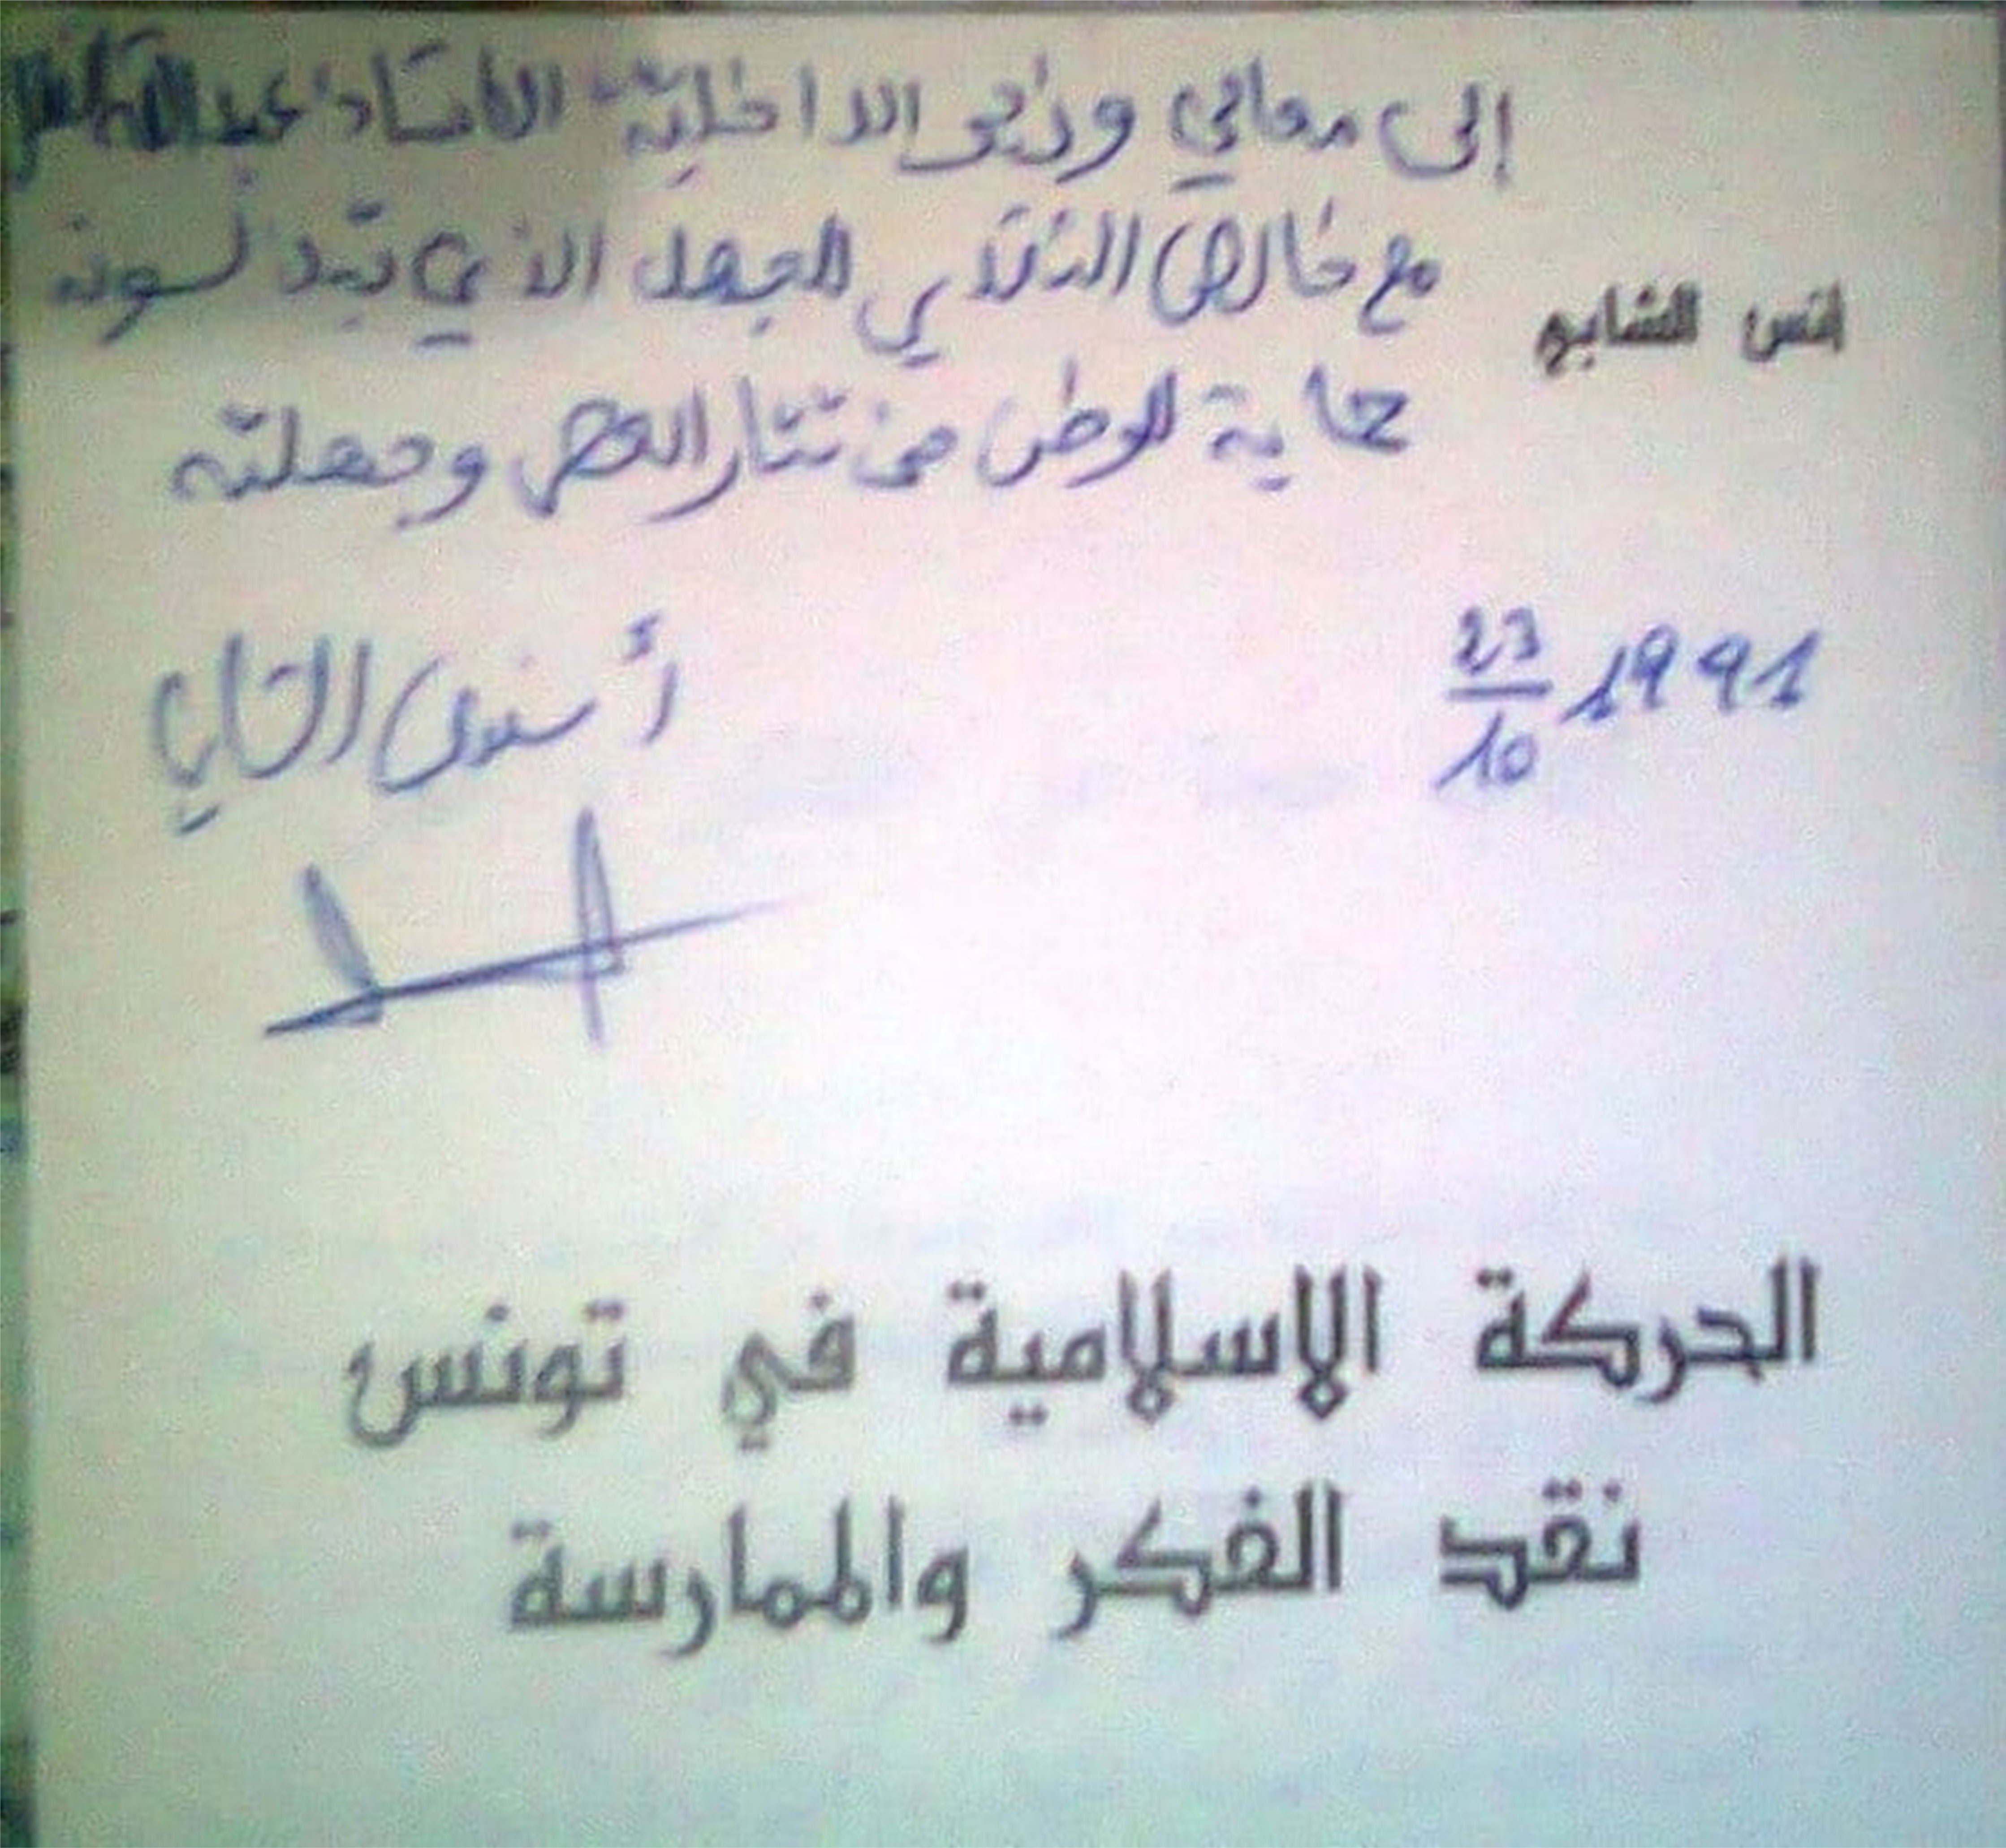 إلى معالي وزير الداخلية الأستاذ عبد الله
مع خالص التقدير للجهد الذي تبذلونه
انس الشابي
حماية للوطن من تتار العصر وجهلته
23/10 1991
أنس الشابي
الحركة الإسلامية في تونس
نقد الفكر والممارسة